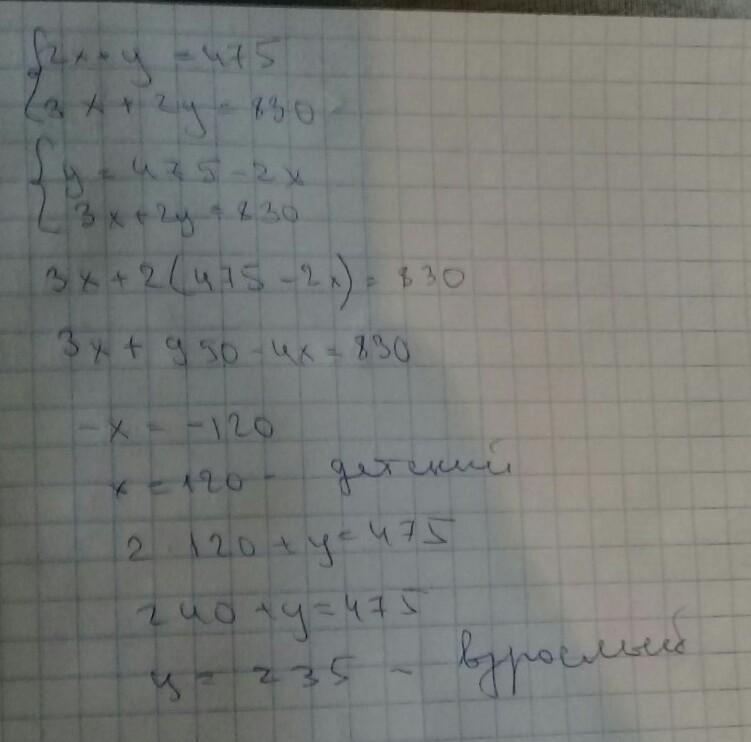 {2x+y=475
3x+2y=830
{y=475-2x
3x+2y=830
3x+2(475-2x)=830
3x+950-4x=830
-x=-120
x=120- детский
2 120+y=475
240+y=475
y=235 - взрослый